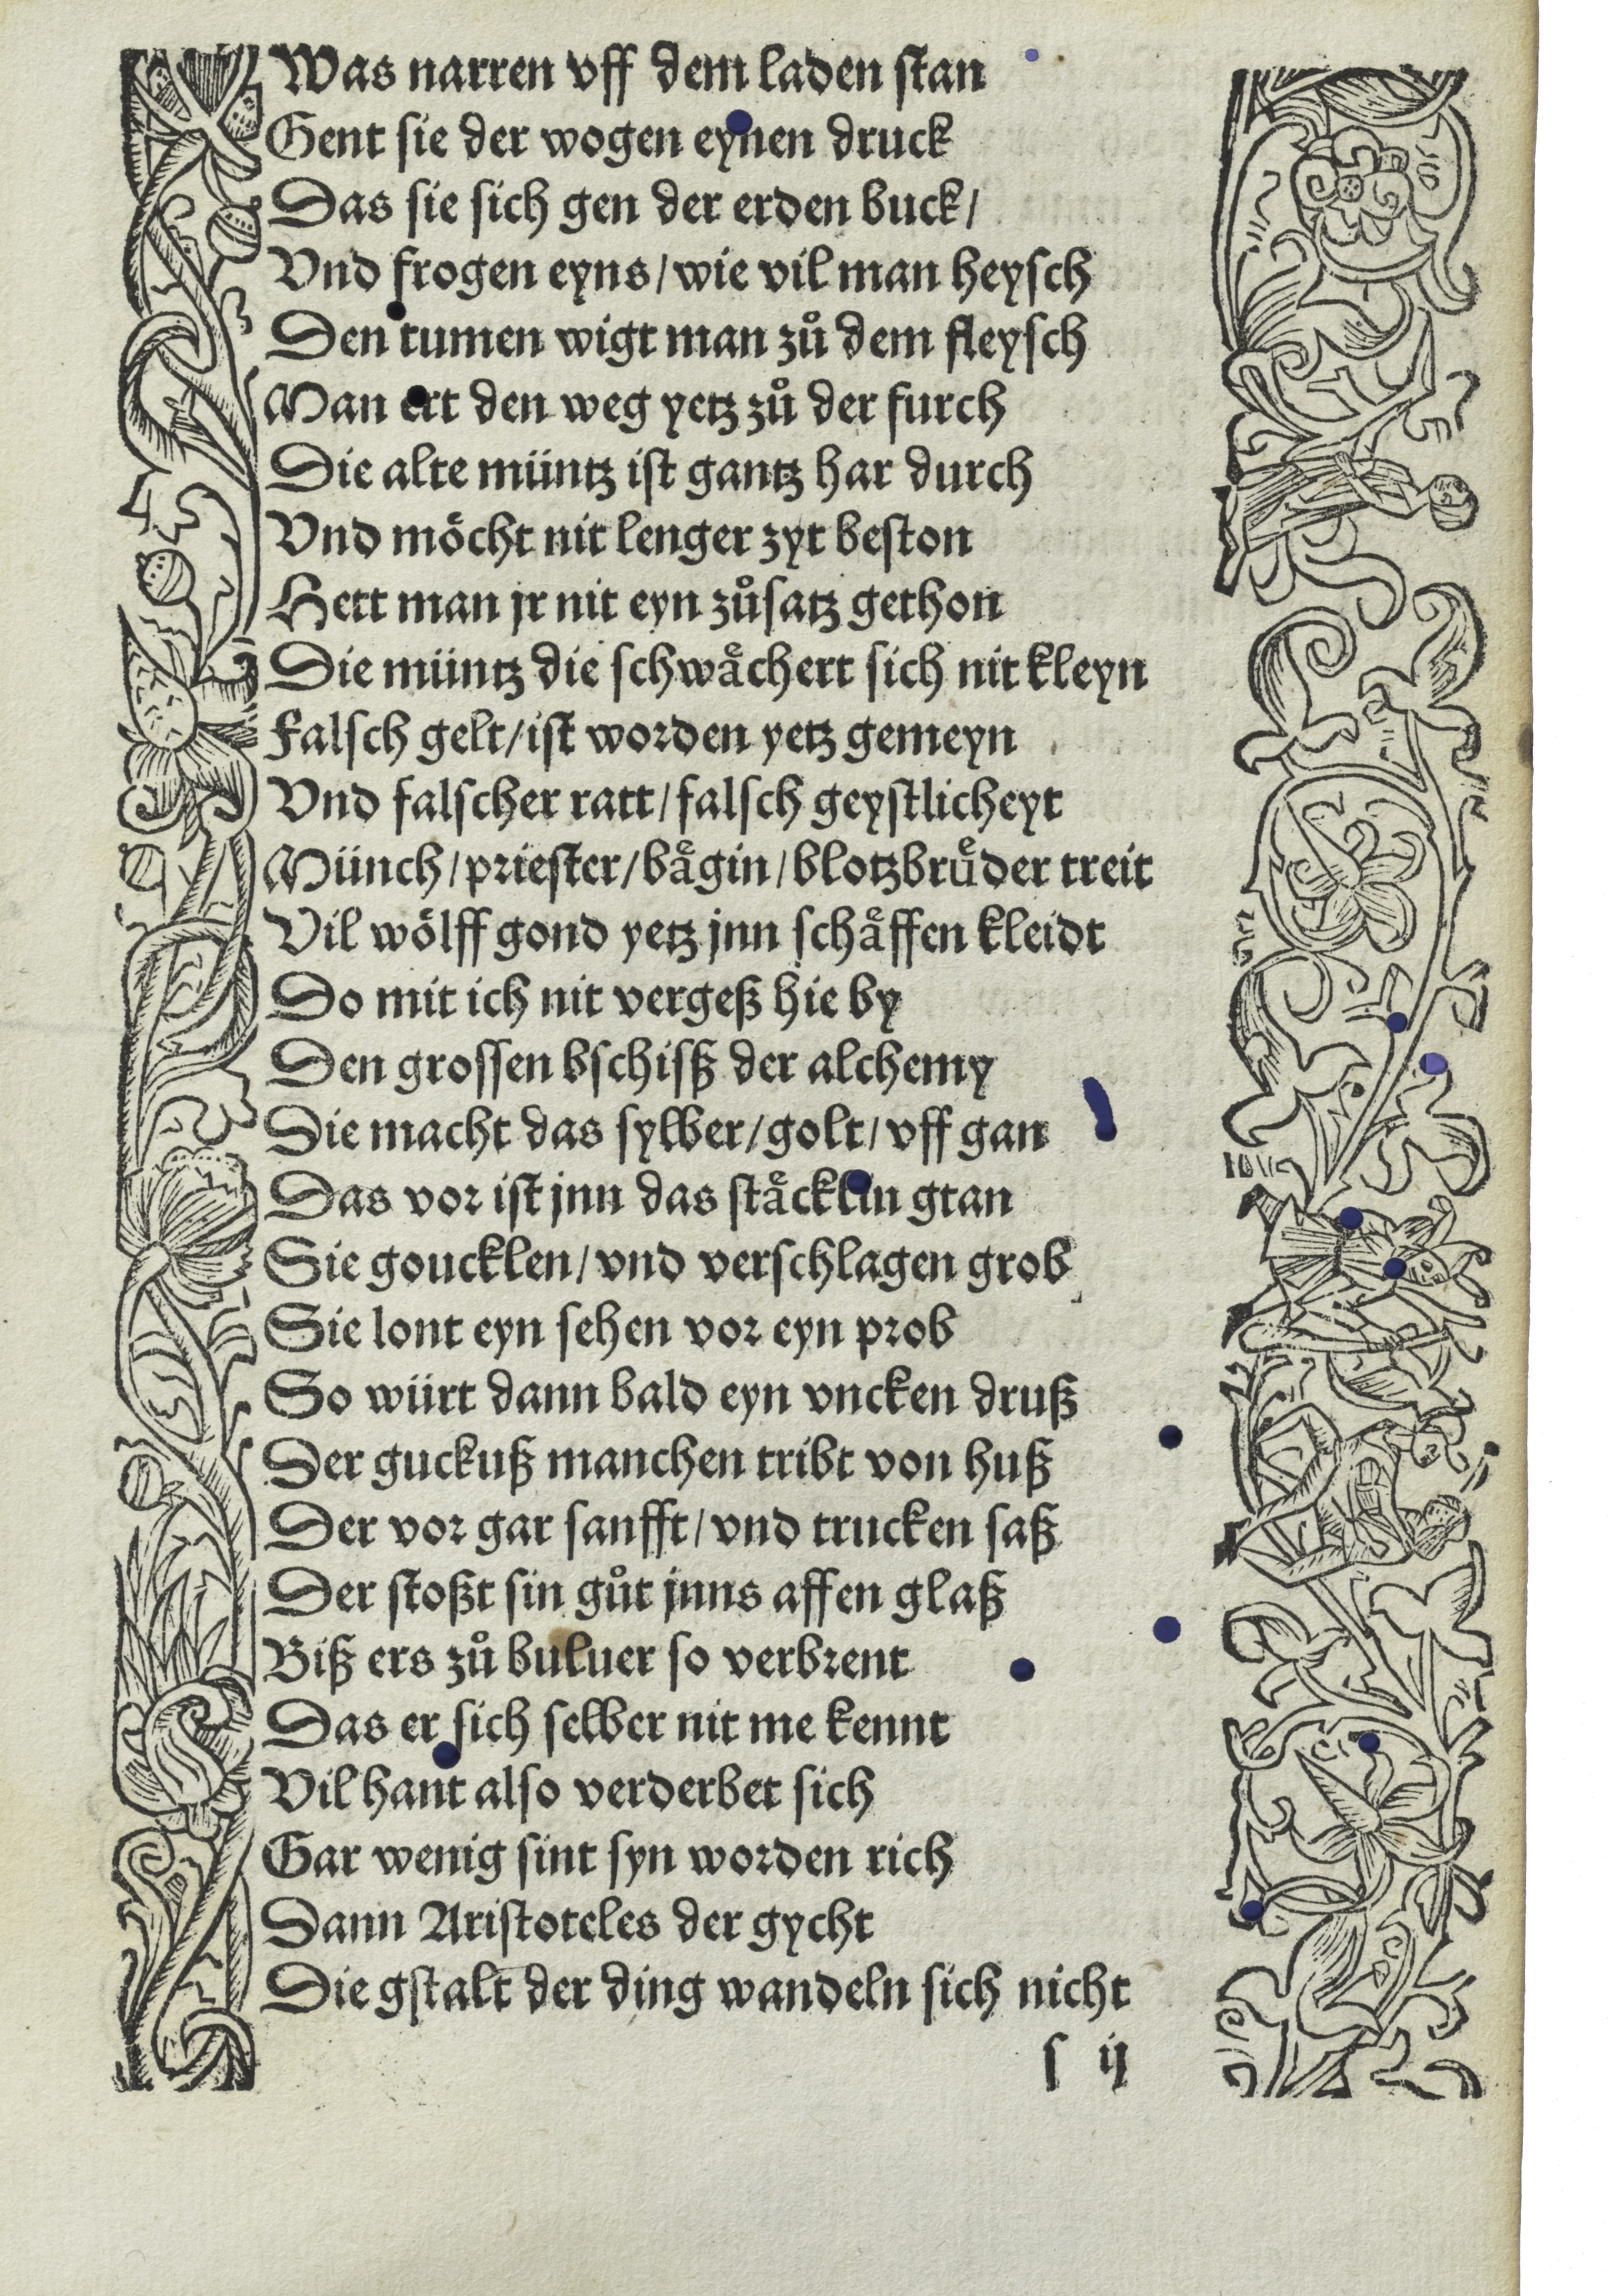 Was narren vff dem laden stan
Gent sie der wogen eynen druck
Das sie sich gen der erden buck/
Vnd frogen eyns/wie vil man heysch
Den tumen wigt man zů dem fleysch
Man ert den weg yetz zů der furch
Die alte müntz ist gantz har durch
Vnd moͤcht nit lenger zyt beston
Hett man jr nit eyn zůsatz gethon
Die müntz die schwaͤchert sich nit kleyn
Falsch gelt/ist worden yetz gemeyn
Vnd falscher ratt/falsch geystlicheyt
Münch/priester/baͤgin/blotzbruͤder treit
Vil woͤlff gond yetz jnn schaͤffen kleidt
Do mit ich nit vergeß hie by
Den grossen bschisß der alchemy
Die macht das sylber/golt/vff gan
Das vor ist jnn das staͤcklin gtan
Sie goucklen/vnd verschlagen grob
Sie lont eyn sehen vor eyn prob
So würt dann bald eyn vncken druß
Der guckuß manchen tribt von huß
Der vor gar sanfft/vnd trucken saß
Der stoßt sin gůt jnns affen glaß
Biß ers zů buluer so verbrent
Das er sich selber nit me kennt
Vil hant also verderbet sich
Gar wenig sint syn worden rich
Dann Aristoteles der gycht
Die gstalt der ding wandeln sich nicht
s ij